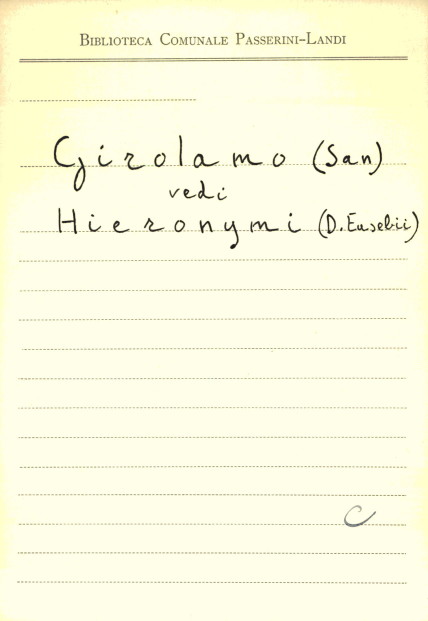 BIBLIOTECA COMUNALE PASSERINI-LANDI
Girolamo (San)
vedi
Hieronymi (D. Eusebii)
C